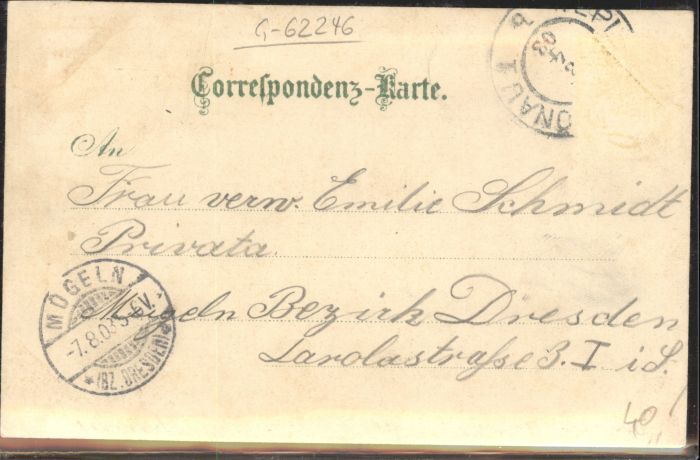 G-62246
Correspondenz-Karte.
An
Frau verw. Emilie Schmidt
Privata
Mögeln Bezirk Dresden
Carolastraße 3. I i. S.
MÖGELN
-7.8.03
*(BZ. DRESDEN)*
ÖNAU
40